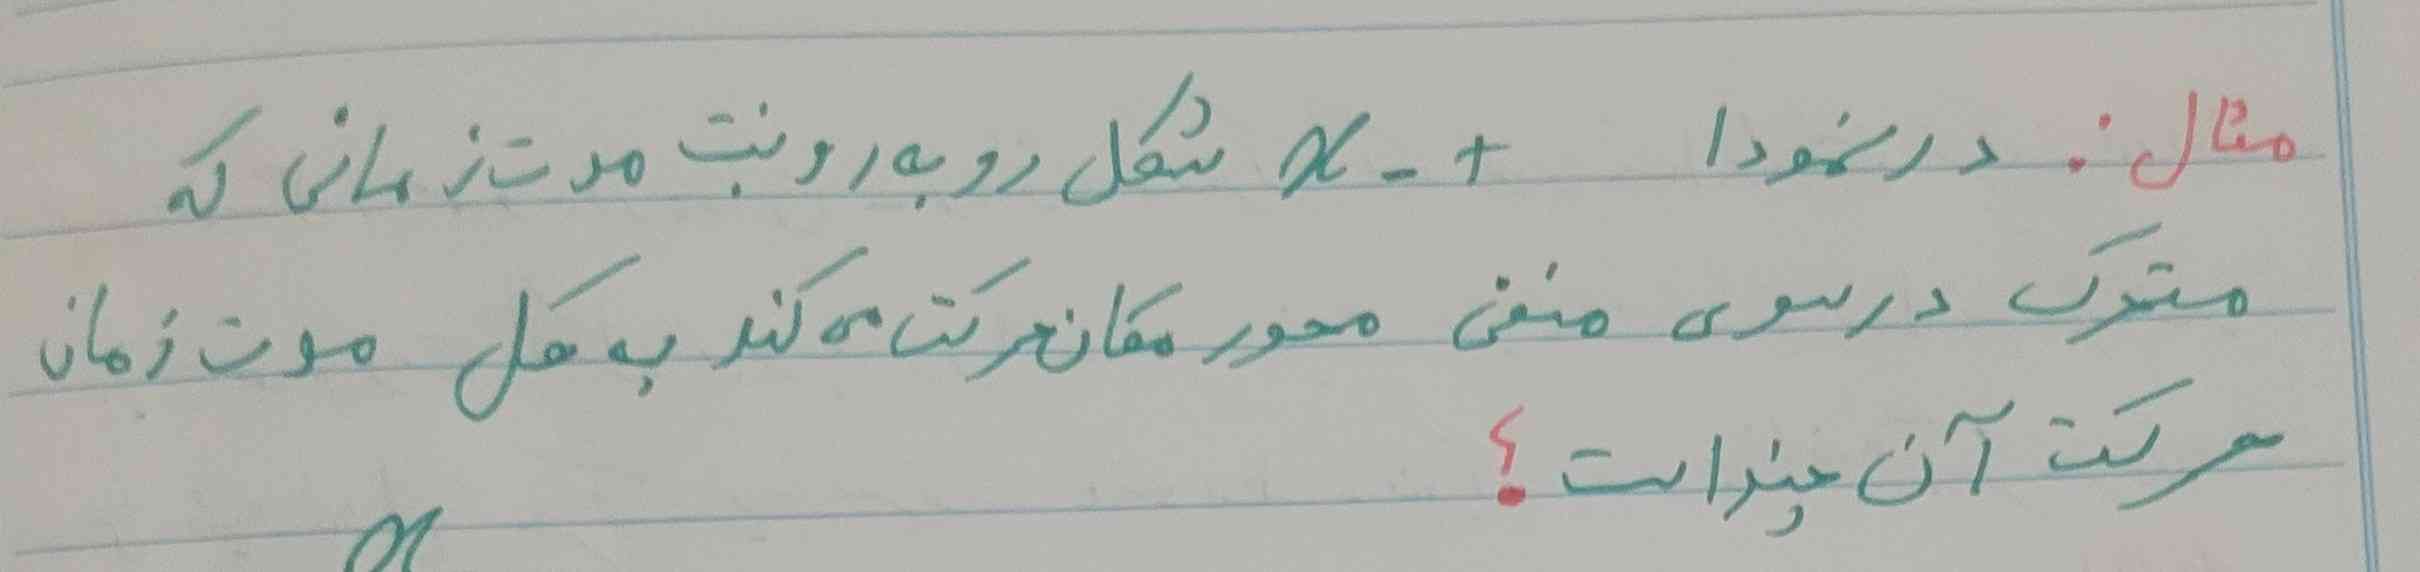 مثال: در نمودا x - t شکل رو به رو نسبت مدت زمانی که
متحرک در سوی منفی محور مکان حرکت می کند به کل مدت زمان
حرکت آن چند است؟
x